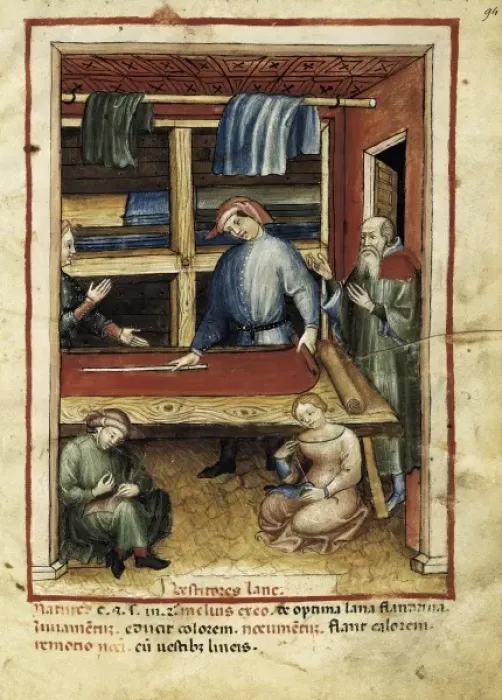 94
Vestitores lane.
Nature c. 7. s. in. 2º. melius ex eo. de optima lana flandrina.
iuuamentum. educit colorem. nocumentum. flant calorem.
remotio noci. cũ uestibz lineis.